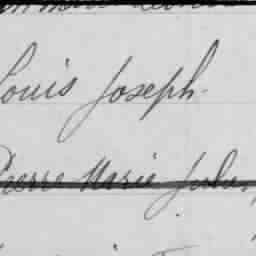 Louis Joseph
Pierre Marie Jules